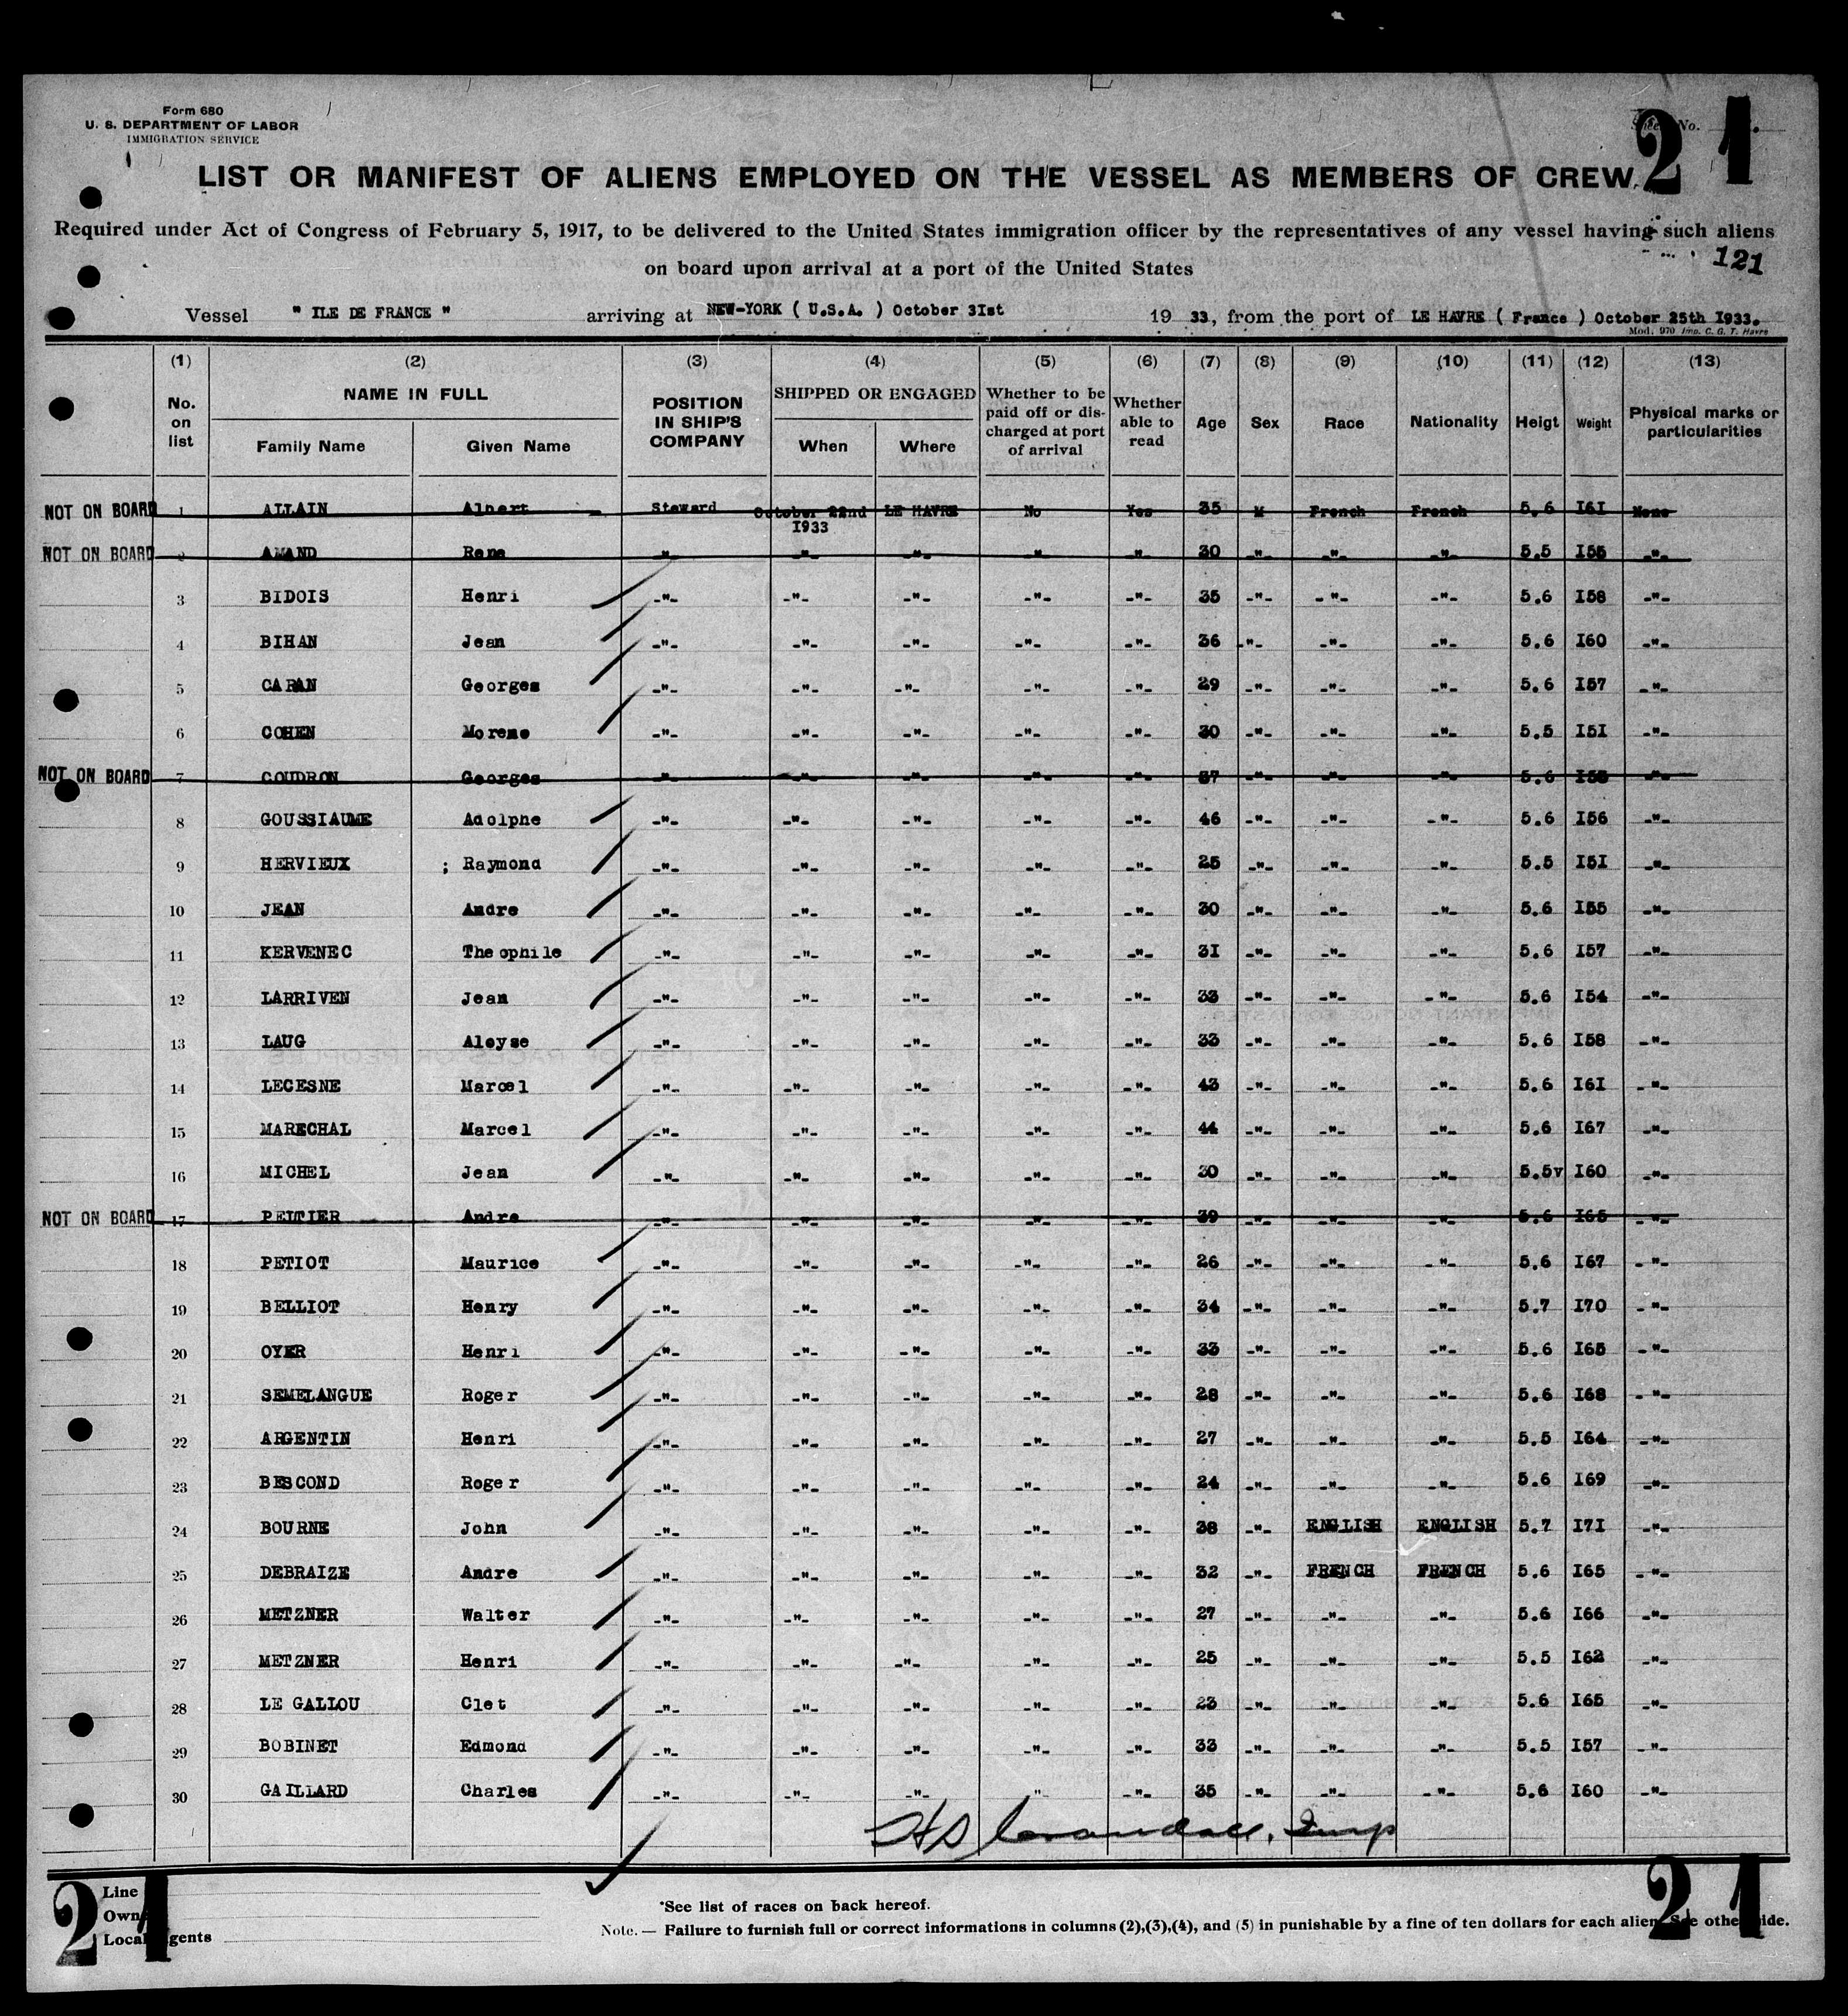 Form 680
U. S. DEPARTMENT OF LABOR
IMMIGRATION SERVICE
Sheet No.
21
LIST OR MANIFEST OF ALIENS EMPLOYED ON THE VESSEL AS MEMBERS OF CREW
Required under Act of Congress of February 5, 1917, to be delivered to the United States immigration officer by the representatives of any vessel having such aliens
on board upon arrival at a port of the United States
121
Vessel " ILE DE FRANCE " arriving at NEW-YORK ( U.S.A. ) October 3Ist 19 33, from the port of LE HAVRE ( France ) October 25th I933.
Mod. 970 Imp. C. G. T. Havre
(1) (2) (3) (4) (5) (6) (7) (8) (9) (10) (11) (12) (13)
No. on list NAME IN FULL Family Name Given Name POSITION IN SHIP'S COMPANY SHIPPED OR ENGAGED When Where Whether to be paid off or discharged at port of arrival Whether able to read Age Sex Race Nationality Heigt Weight Physical marks or particularities
NOT ON BOARD 1 ALLAIN Albert Steward October 22nd I933 LE HAVRE No Yes 35 M French French 5.6 I6I None
NOT ON BOARD 2 AMAND Rene -"- -"- -"- -"- -"- 30 -"- -"- -"- 5.5 I55 -"-
3 BIDOIS Henri -"- -"- -"- -"- -"- 35 -"- -"- -"- 5.6 I58 -"-
4 BIHAN Jean -"- -"- -"- -"- -"- 36 -"- -"- -"- 5.6 I60 -"-
5 CARAN Georges -"- -"- -"- -"- -"- 29 -"- -"- -"- 5.6 I57 -"-
6 COHEN Morene -"- -"- -"- -"- -"- 30 -"- -"- -"- 5.5 I5I -"-
NOT ON BOARD 7 COUDRON Georges -"- -"- -"- -"- -"- 37 -"- -"- -"- 5.6 -"-
8 GOUSSIAUME Adolphe -"- -"- -"- -"- -"- 46 -"- -"- -"- 5.6 I56 -"-
9 HERVIEUX ; Raymond -"- -"- -"- -"- -"- 25 -"- -"- -"- 5.5 I5I -"-
10 JEAN Andre -"- -"- -"- -"- -"- 30 -"- -"- -"- 5.6 I55 -"-
11 KERVENEC Theophile -"- -"- -"- -"- -"- 3I -"- -"- -"- 5.6 I57 -"-
12 LARRIVEN Jean -"- -"- -"- -"- -"- 33 -"- -"- -"- 5.6 I54 -"-
13 LAUG Aloyse -"- -"- -"- -"- -"- 33 -"- -"- -"- 5.6 I58 -"-
14 LECESNE Marcel -"- -"- -"- -"- -"- 43 -"- -"- -"- 5.6 I6I -"-
15 MARECHAL Marcel -"- -"- -"- -"- -"- 44 -"- -"- -"- 5.6 I67 -"-
16 MICHEL Jean -"- -"- -"- -"- -"- 30 -"- -"- -"- 5.5v I60 -"-
NOT ON BOARD 17 PELTIER Andre -"- -"- -"- -"- -"- 39 -"- -"- -"- 5.6 I65 -"-
18 PETIOT Maurice -"- -"- -"- -"- -"- 26 -"- -"- -"- 5.6 I67 -"-
19 BELLIOT Henry -"- -"- -"- -"- -"- 34 -"- -"- -"- 5.7 I70 -"-
20 OYER Henri -"- -"- -"- -"- -"- 33 -"- -"- -"- 5.6 I65 -"-
21 SEMELANGUE Roger -"- -"- -"- -"- -"- 28 -"- -"- -"- 5.6 I68 -"-
22 ARGENTIN Henri -"- -"- -"- -"- -"- 27 -"- -"- -"- 5.5 I64 -"-
23 BESCOND Roger -"- -"- -"- -"- -"- 24 -"- -"- -"- 5.6 I69 -"-
24 BOURNE John -"- -"- -"- -"- -"- 38 -"- ENGLISH ENGLISH 5.7 I7I -"-
25 DEBRAIZE Andre -"- -"- -"- -"- -"- 32 -"- FRENCH FRENCH 5.6 I65 -"-
26 METZNER Walter -"- -"- -"- -"- -"- 27 -"- -"- -"- 5.6 I66 -"-
27 METZNER Henri -"- -"- -"- -"- -"- 25 -"- -"- -"- 5.5 I62 -"-
28 LE GALLOU Clet -"- -"- -"- -"- -"- 23 -"- -"- -"- 5.6 I65 -"-
29 BOBINET Edmond -"- -"- -"- -"- -"- 33 -"- -"- -"- 5.5 I57 -"-
30 GAILLARD Charles -"- -"- -"- -"- -"- 35 -"- -"- -"- 5.6 I60 -"-
21 21
Line
Owners
Local Agents
*See list of races on back hereof.
Note. — Failure to furnish full or correct informations in columns (2),(3),(4), and (5) in punishable by a fine of ten dollars for each alien. See other side.